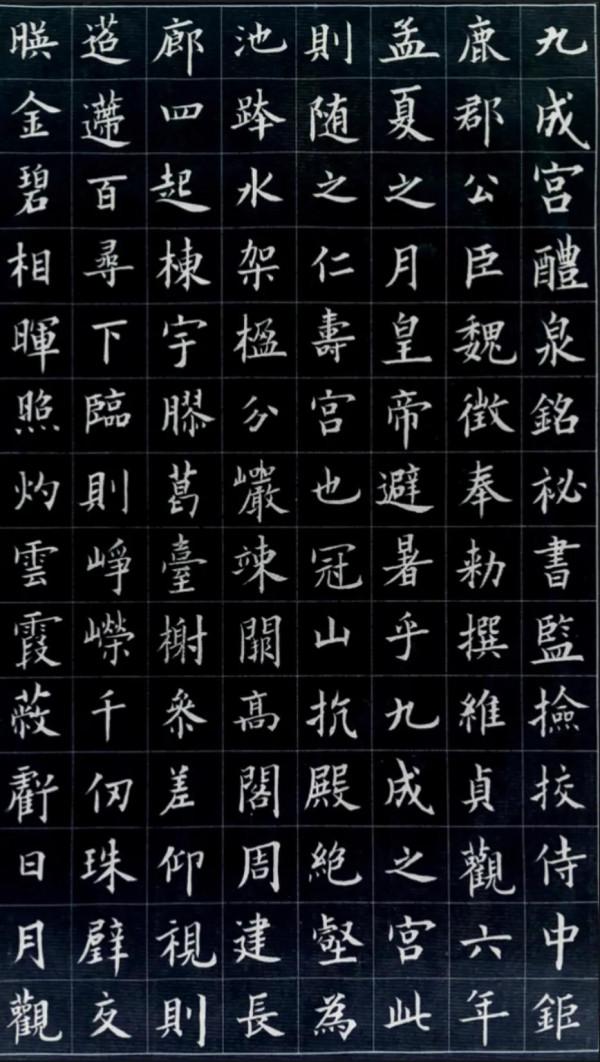 九成宮醴泉銘祕書監撿挍侍中鉅
鹿郡公臣魏徵奉勑撰維貞觀六年
孟夏之月皇帝避暑乎九成之宮此
則随之仁壽宮也冠山抗殿絶壑為
池跨水架楹分巖竦闕高閣周建長
廊四起棟宇膠葛臺榭參差仰視則
迢遰百尋下臨則崢嶸千仞珠璧交
暎金碧相暉照灼雲霞蔽虧日月觀